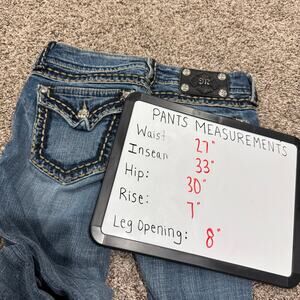 PANTS MEASUREMENTS
Waist 27"
Inseam 33"
Hip: 30"
Rise: 7"
Leg Opening: 8"